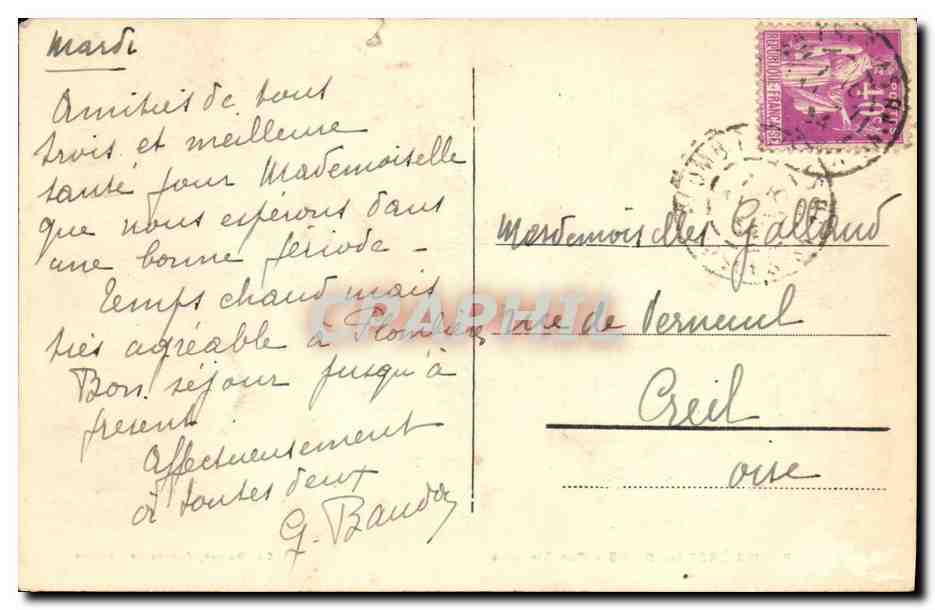 Mardi
Amitiés de tous
trois et meilleure
santé pour Mademoiselle
que nous espérons dans
une bonne période -
Temps chaud mais
très agréable à Plombières
Bon séjour jusqu'à
présent
Affectueusement
à toutes deux
G. Baudo
Mesdemoiselles Galland
rue de Verneuil
Creil
oise
REPUBLIQUE FRANÇAISE
CPAPHIL